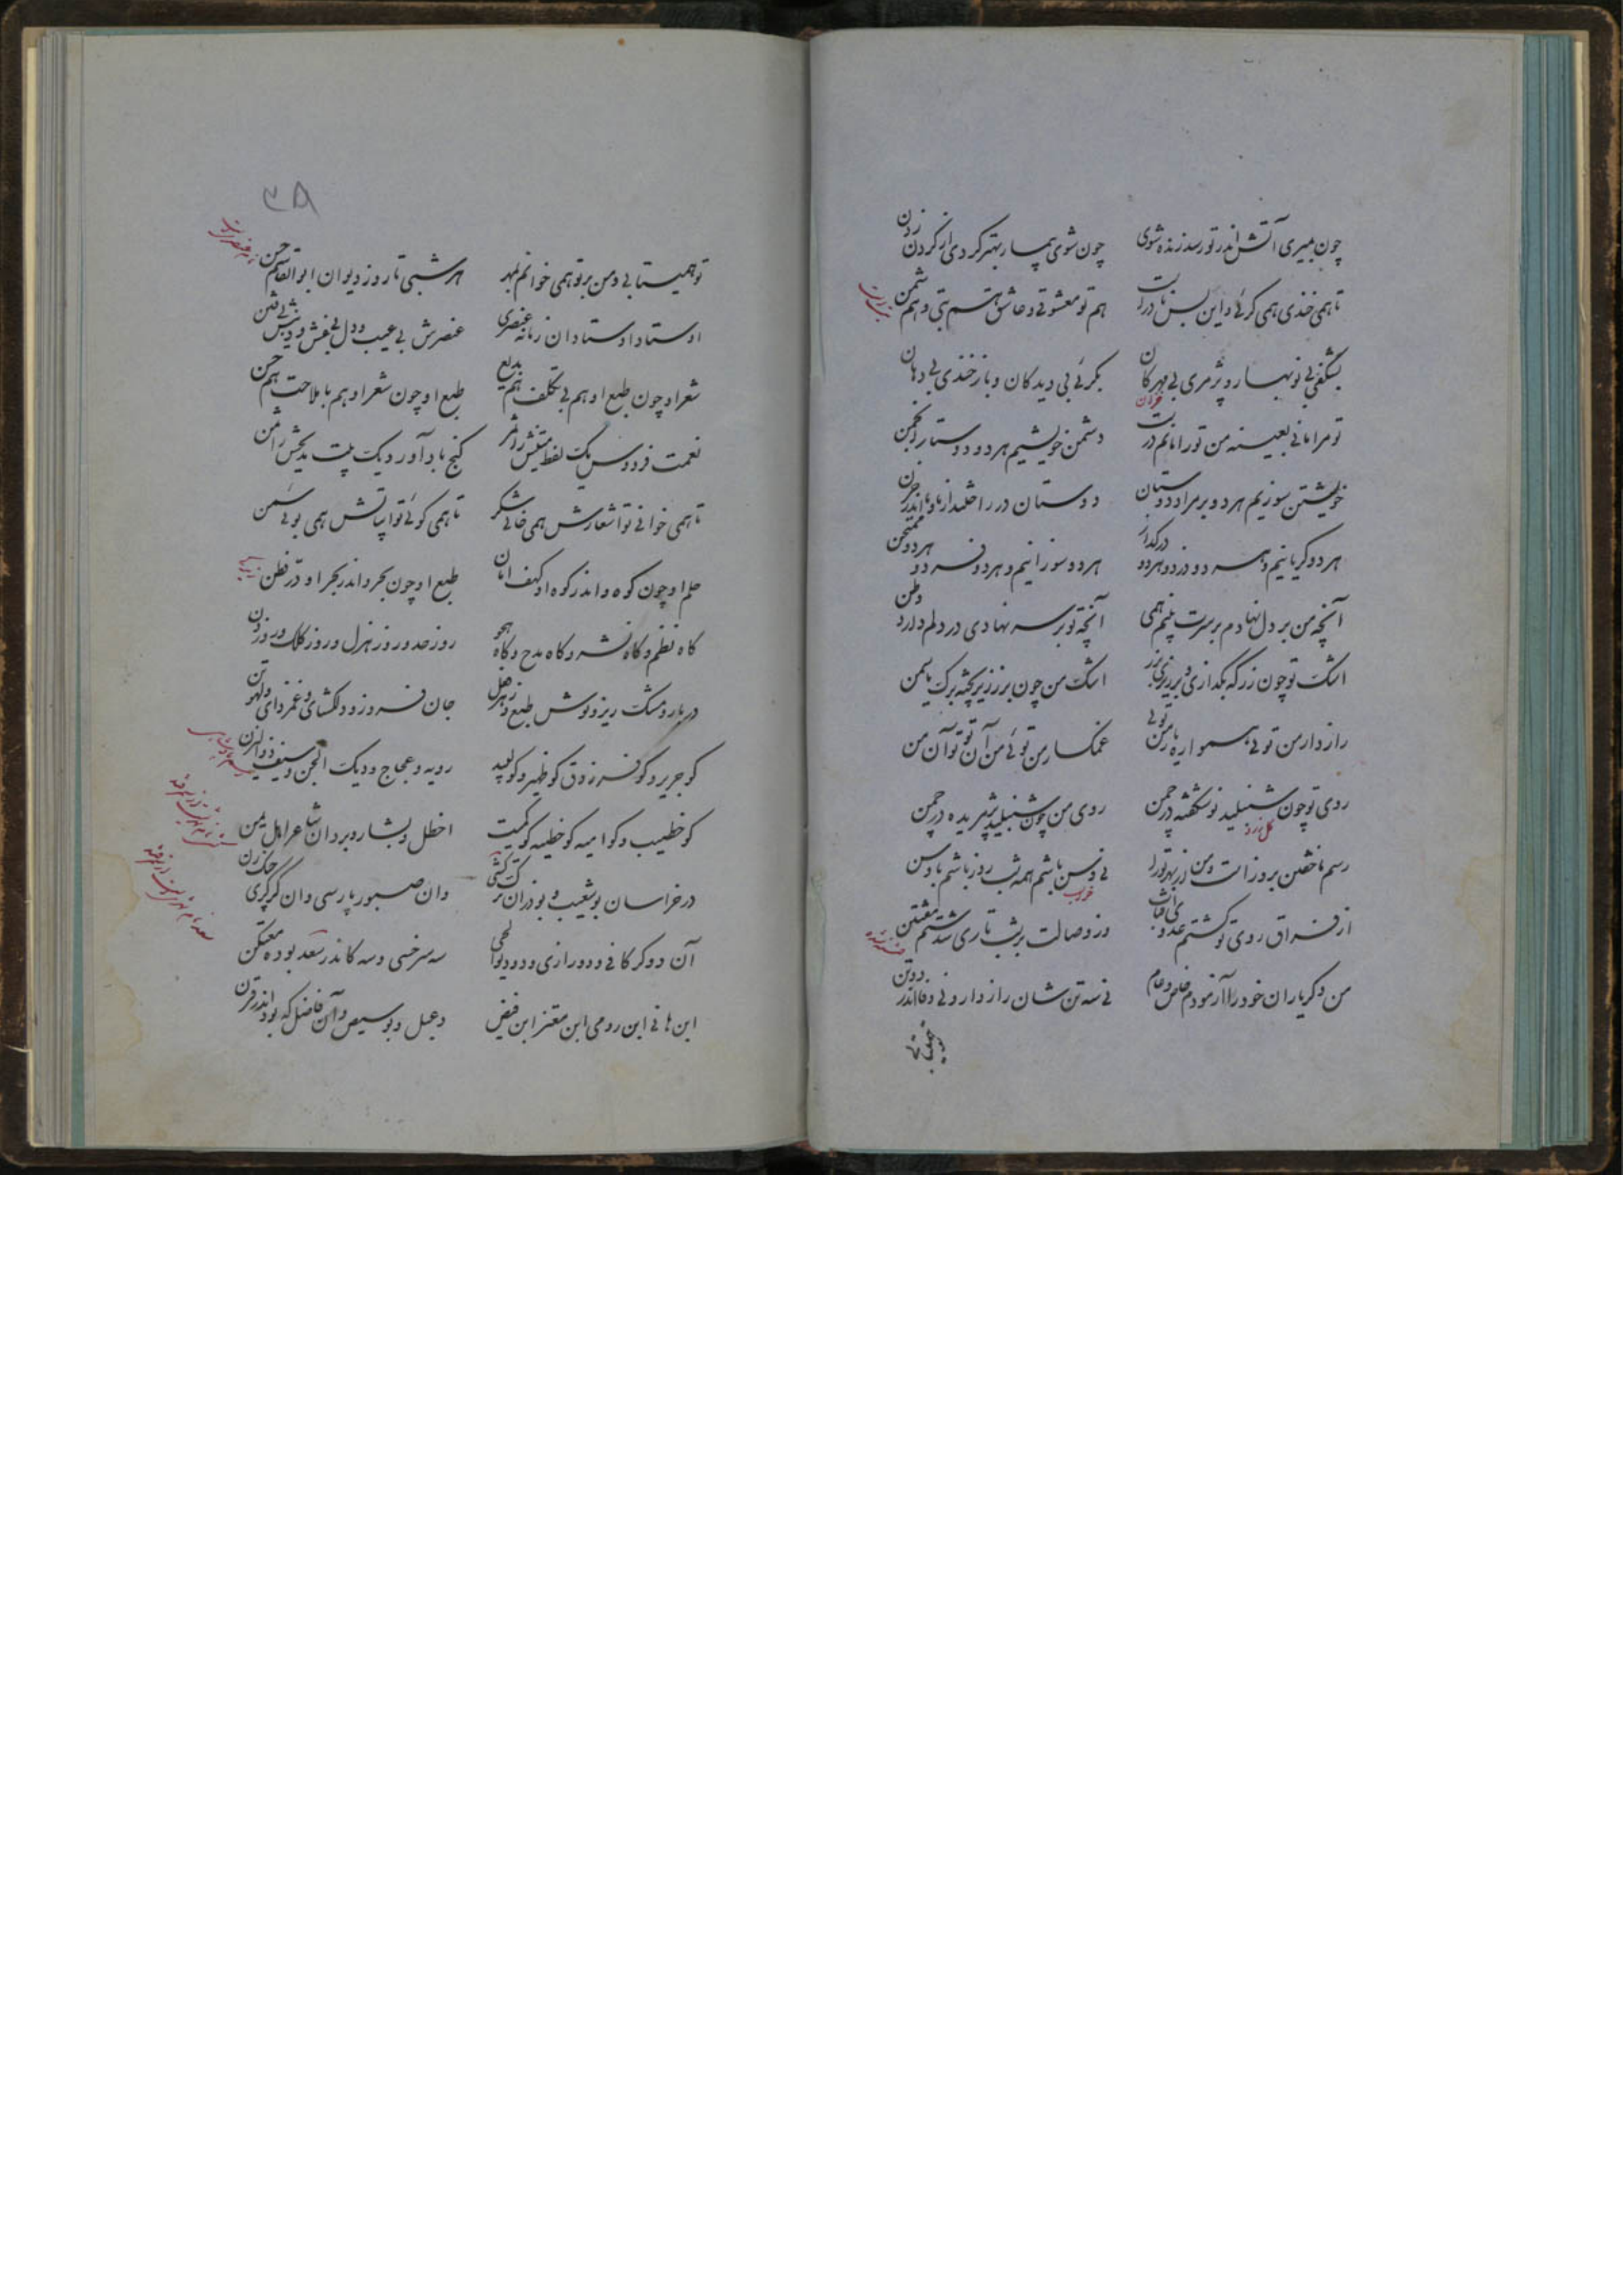 چون بمیری آتش اندر تو رسد زنده شوی چون شوی بیمار بهتر کردی از کردن زدن
تا همی خندی همی کرئی و این بس نادرست هم تو معشوقی و عاشق هم بتی و هم شمن
بشکفی بی نوبهار و پژمری بی مهرکان بکرئی بی دیدکان و باز خندی بی دهان
خزان
تو مرا مانی بعینه من تو را مانم درست دشمن خویشیم هر دو دوستار انجمن
خویشتن سوزیم هر دو بر مراد دوستان دوستان در راحتند از ما و ما اندر حزن
هر دو کریانیم و هر دو زرد و هر دو در کداز هر دو سوزانیم و هر دو فرد و هر دو ممتحن
آنچه من بر دل نهادم بر سرت بینم همی آنچه تو بر سر نهادی در دلم دارد وطن
اشک تو چون زر که بکدازی و بر ریزی بزر اشک من چون بر زر ریخته برک یاسمن
رازدار من توئی همواره یار من توئی غمکسار من توئی من آن تو تو آن من
روی تو چون شنبلید نو شکفته در چمن روی من چون شنبلید پژمریده در چمن
گل زرد
رسم ناخفتن بروز است و من از بهر تو را بی وسن باشم همه شب روز باشم با وسن
خواب
از فراق روی تو کشتم عدوی آفتاب وز وصالت بر شب تاری شدستم مفتتن
من دکر یاران خود را آزمودم خاص و عام نی سه تن شان رازدار و نی وفا اندر دو تن
۳۸
تو همیتابی و من بر تو همی خوانم بمهر هر شبی تا روز دیوان ابوالقاسم حسن
اوستاد اوستادان زمانه عنصری عنصرش بی عیب و دل بی غش و دینش بی فتن
شعر او چون طبع او هم بی تکلف هم بدیع طبع او چون شعر او هم با ملاحت هم حسن
نعمت فردوس یک لفظ متینش را ثمر کنج باد آورد یک بیت مدیحش را ثمن
تا همی خوانی تو اشعارش همی خائی شکر تا همی کوئی تو ابیاتش همی بوئی سمن
حلم او چون کوه و اندر کوه او کهف امان طبع او چون بحر و اندر بحر او در فطن
کاه نظم و کاه نثر و کاه مدح و کاه هجو روز جد و روز هزل و روز کلک و روز دن
دربار و مشک ریز و نوش طبع و زهر فعل جان فروز و دلکشای و غمزدای و لهو تن
کو جریر و کو فرزدق کو ظهیر و کو لبید رویه و عجاج و دیک الجن و سیف ذو الیزن
کو خطیب و کو امیه کو خطیه کو کمیت اخطل و بشار و برد ان شاعر اهل یمن
در خراسان بو شعیب و بوذر ان ترک کشی وان صبور پارسی وان کرکری چنک زن
آن دو کرکانی و دو رازی و دو ولوالجی سه سرخسی و سه کاندر سغد بوده معتکن
ابن هانی ابن رومی ابن معتز ابن فیض دعبل و بوسیص و آن فاضل که بود اندر قرن